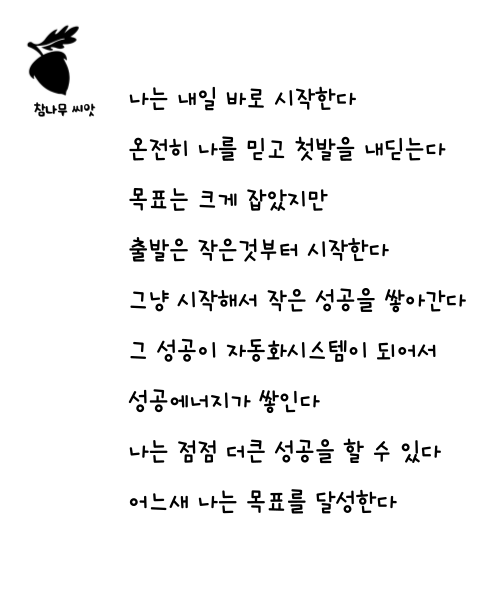 참나무 씨앗
나는 내일 바로 시작한다
온전히 나를 믿고 첫발을 내딛는다
목표는 크게 잡았지만
출발은 작은것부터 시작한다
그냥 시작해서 작은 성공을 쌓아간다
그 성공이 자동화시스템이 되어서
성공에너지가 쌓인다
나는 점점 더큰 성공을 할 수 있다
어느새 나는 목표를 달성한다